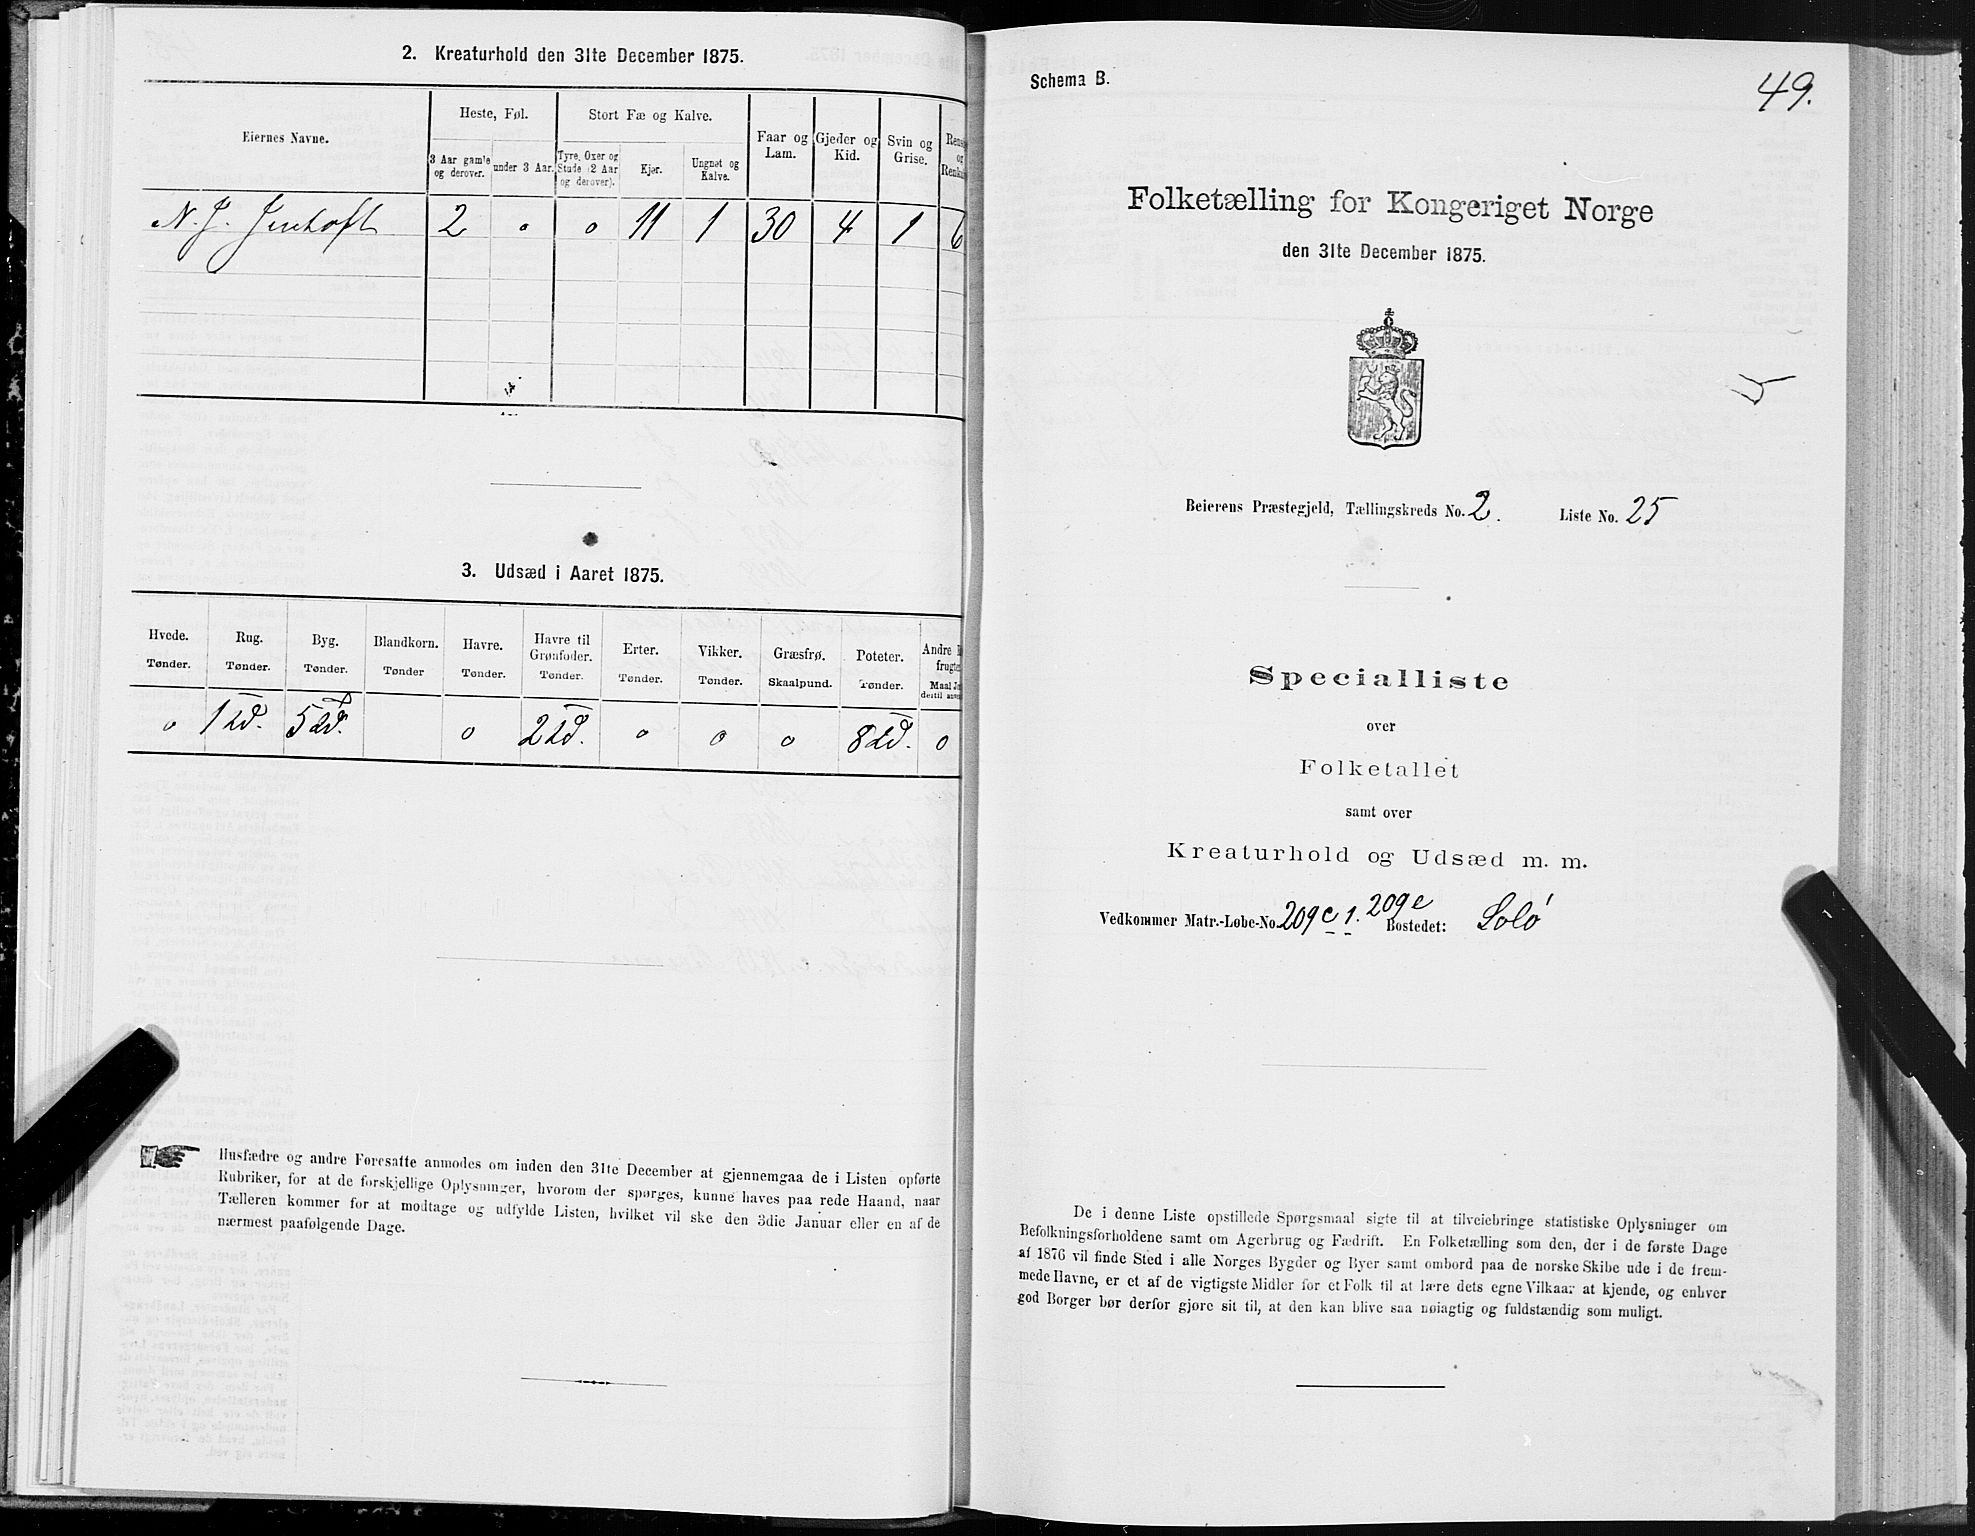 2. Kreaturhold den 31te December 1875.
Eiernes Navne.
Heste, Føl.
Stort Fæ og Kalve.
Faar og Lam.
Gjeder og Kid.
Svin og Grise.
3 Aar gamle og derover.
under 3 Aar.
Tyre, Oxer og Stude (2 Aar og derover).
Kjør.
Ungnøt og Kalve.
N. J. 2 o o 11 1 30 4 1 6
3. Udsæd i Aaret 1875.
Hvede. Rug. Byg. Blandkorn. Havre. Havre til Grønfoder. Erter. Vikker. Græsfrø. Poteter. Andre
Tønder. Tønder. Tønder. Tønder Tønder. Tønder. Tønder. Tønder. Skaalpund. Tønder.
o 1 5 o 2 o o o 8 o
Husfædre og andre Foresatte anmodes om inden den 31te December at gjennemgaa de i Listen opførte
Rubriker, for at de forskjellige Oplysninger, hvorom der spørges, kunne haves paa rede Haand, naar
Tælleren kommer for at modtage og udfylde Listen, hvilket vil ske den 3die Januar eller en af de
nærmest paafølgende Dage.
Schema B.
49.
Folketælling for Kongeriget Norge
den 31te December 1875.
Beierens Præstegjeld, Tællingskreds No. 2. Liste No. 25
Specialliste
over
Folketallet
samt over
Kreaturhold og Udsæd m. m.
Vedkommer Matr.-Løbe-No. 209 c 1. 209 e Bostedet: Solø
De i denne Liste opstillede Spørgsmaal sigte til at tilveiebringe statistiske Oplysninger om
Befolkningsforholdene samt om Agerbrug og Fædrift. En Folketælling som den, der i de første Dage
af 1876 vil finde Sted i alle Norges Bygder og Byer samt ombord paa de norske Skibe ude i de frem-
mede Havne, er et af de vigtigste Midler for et Folk til at lære dets egne Vilkaar at kjende, og enhver
god Borger bør derfor gjøre sit til, at den kan blive saa nøiagtig og fuldstændig som muligt.